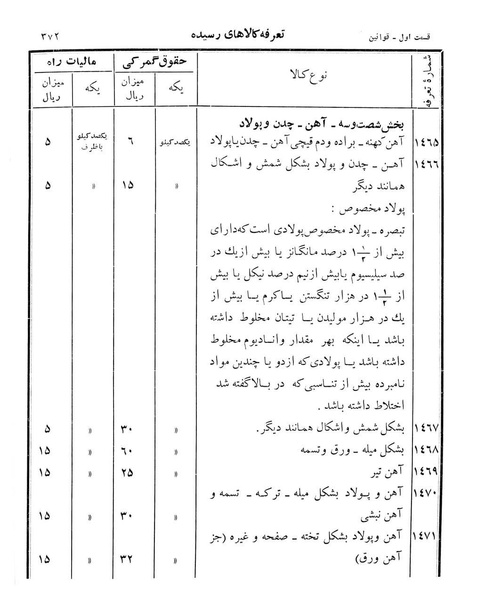 قسمت اول ـ قوانین تعرفه کالاهای رسیده ۳۷۲
شمارهٔ تعرفه نوع کالا حقوق گمرکی مالیات راه
یکه میزان ریال یکه میزان ریال
بخش شصت‌وسه ـ آهن ـ چدن و پولاد
۱۴۶۵ آهن کهنه ـ براده ودم قیچی آهن ـ چدن یا پولاد یکصد کیلو ۶ یکصد کیلو باظرف ۵
۱۴۶۶ آهن ـ چدن و پولاد بشکل شمش و اشکال
همانند دیگر » ۱۵ » ۵
پولاد مخصوص :
تبصره ـ پولاد مخصوص پولادی است که دارای
بیش از ۱ ۱/۲ درصد مانگانز یا بیش از یک در
صد سیلیسیوم یا بیش از نیم درصد نیکل یا بیش
از ۱ ۱/۲ در هزار تنگستن یا کرم یا بیش از
یك در هزار مولیدن یا تیتان مخلوط داشته
باشد یا اینکه بهر مقدار وانادیوم مخلوط
داشته باشد یا پولادی که از دو یا چندین مواد
نامبرده بیش از تناسبی که در بالا گفته شد
اختلاط داشته باشد .
۱۴۶۷ بشکل شمش واشکال همانند دیگر. » ۳۰ » ۵
۱۴۶۸ بشکل میله ـ ورق وتسمه » ۶۰ » ۱۵
۱۴۶۹ آهن تیر » ۲۵ » ۱۵
۱۴۷۰ آهن و پولاد بشکل میله ـ ترکه ـ تسمه و
آهن نبشی » ۳۰ » ۱۵
۱۴۷۱ آهن وپولاد بشکل تخته ـ صفحه و غیره (جز
آهن ورق) » ۳۲ » ۱۵